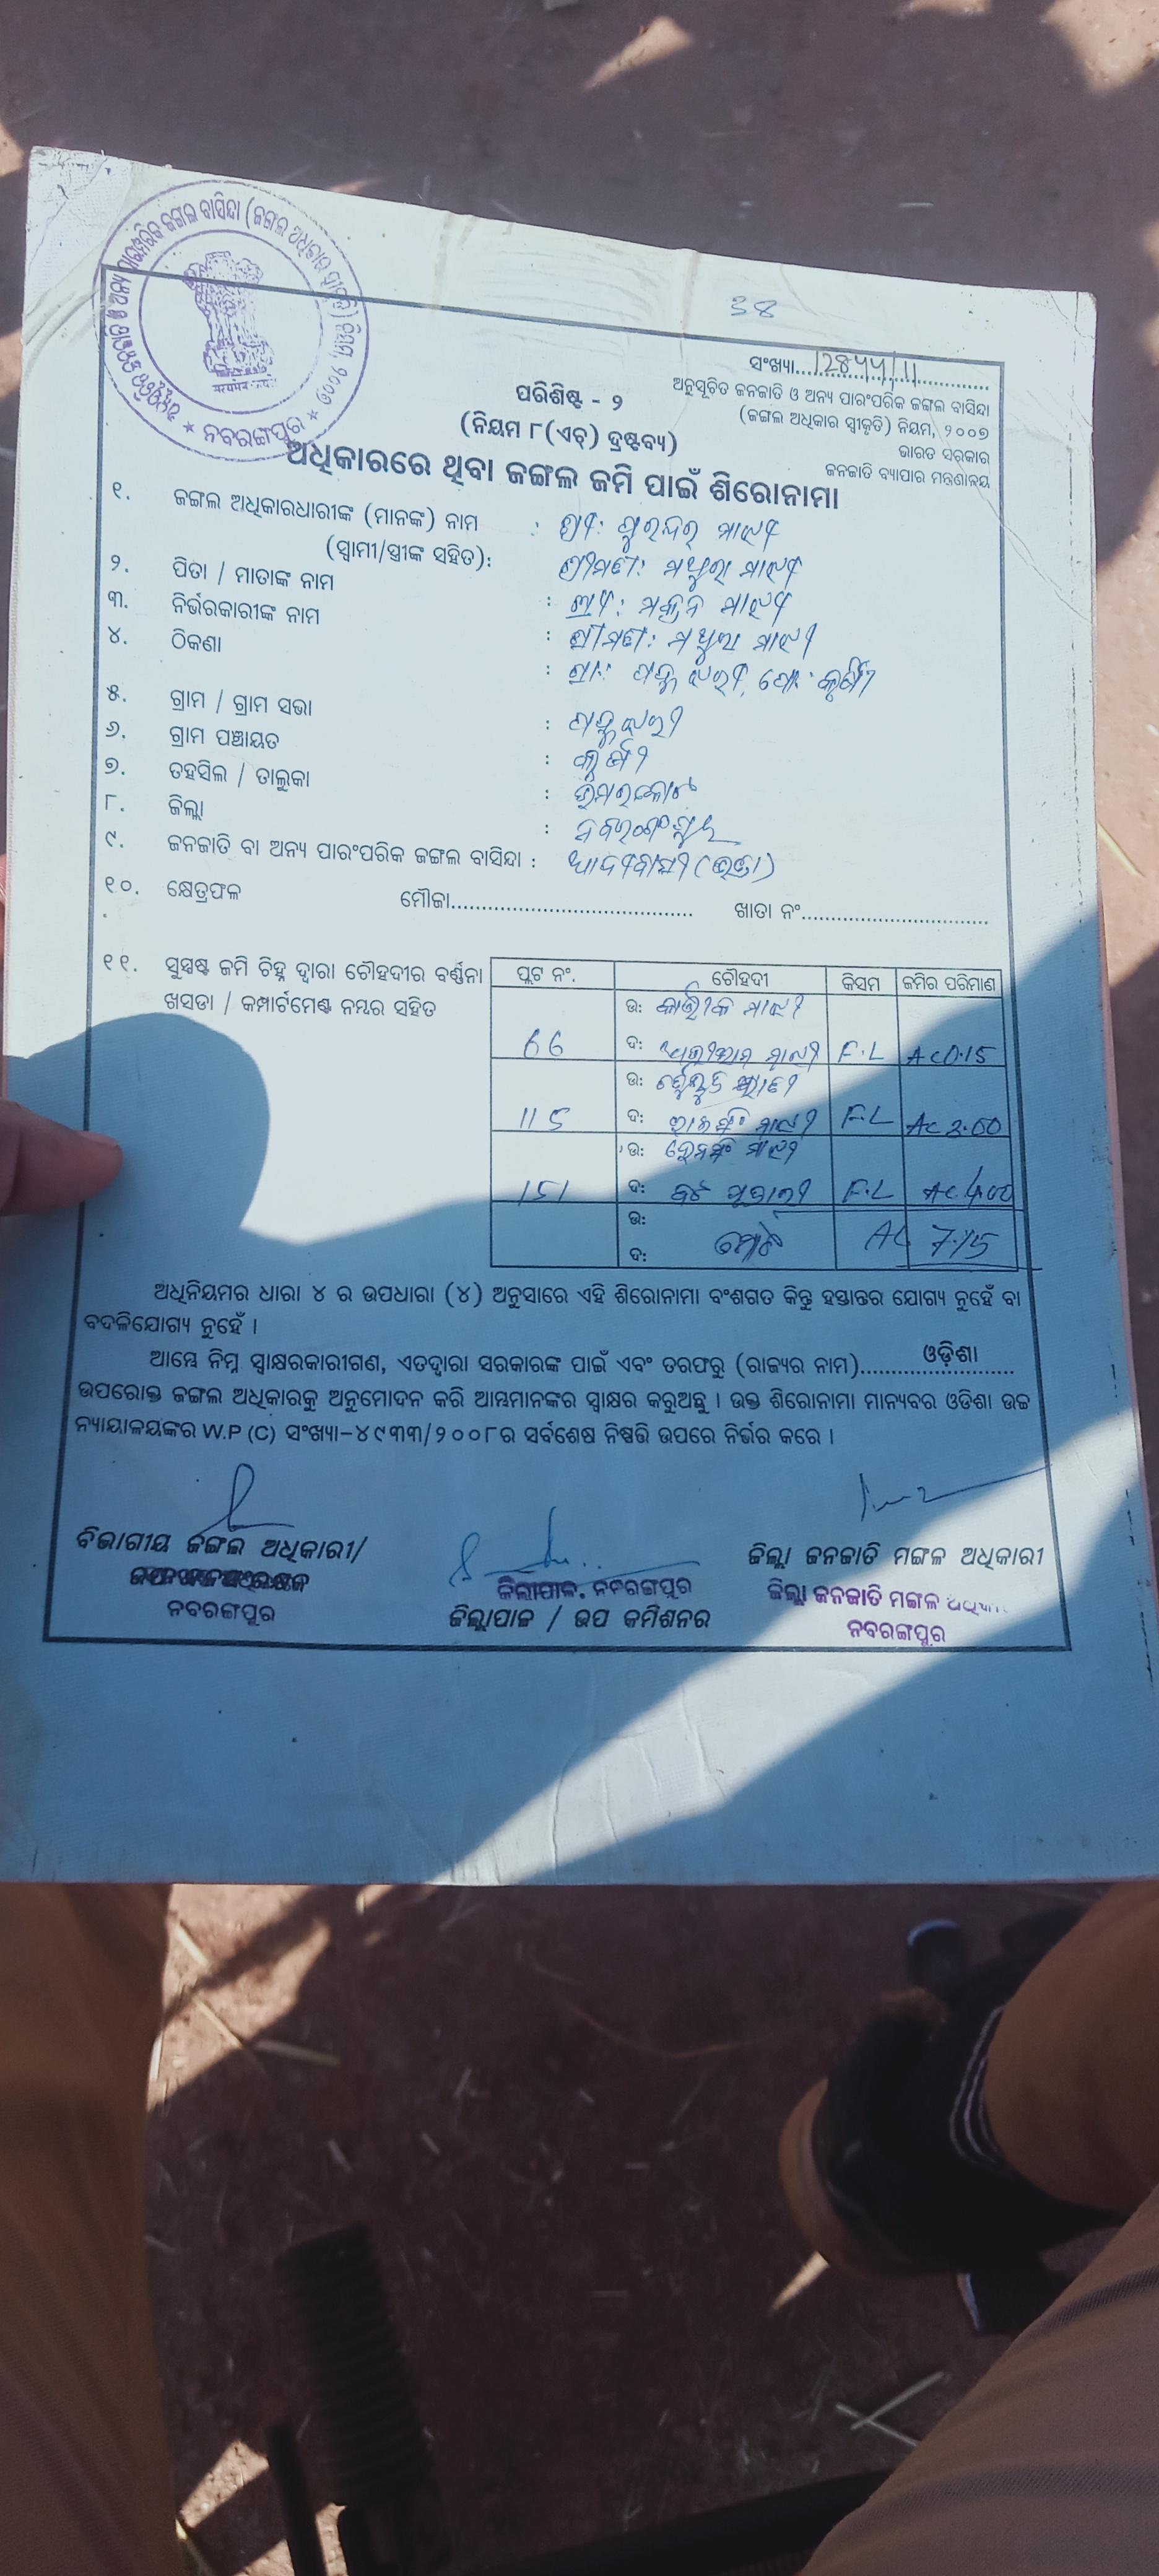 ଅନୁସୂଚିତ ଜନଜାତି ଓ ଅନ୍ୟ ପାରଂପରିକ ଜଙ୍ଗଲ ବାସିନ୍ଦା (ଜଙ୍ଗଲ ଅଧିକାର ସ୍ୱୀକୃତି) ନିୟମ, ୨୦୦୭
★ ନବରଙ୍ଗପୁର ★
38
ସଂଖ୍ୟା
ଅନୁସୂଚିତ ଜନଜାତି ଓ ଅନ୍ୟ ପାରଂପରିକ ଜଙ୍ଗଲ ବାସିନ୍ଦା
(ଜଙ୍ଗଲ ଅଧିକାର ସ୍ୱୀକୃତି) ନିୟମ, ୨୦୦୭
ଭାରତ ସରକାର
ଜନଜାତି ବ୍ୟାପାର ମନ୍ତ୍ରଣାଳୟ
ପରିଶିଷ୍ଟ - ୨
(ନିୟମ ୮(ଏଚ୍) ଦ୍ରଷ୍ଟବ୍ୟ)
ଅଧିକାରରେ ଥିବା ଜଙ୍ଗଲ ଜମି ପାଇଁ ଶିରୋନାମା
୧. ଜଙ୍ଗଲ ଅଧିକାରଧାରୀଙ୍କ (ମାନଙ୍କ) ନାମ : ଶ୍ରୀ: ପୁରନ୍ଦର ମାଝୀ
(ସ୍ୱାମୀ/ସ୍ତ୍ରୀଙ୍କ ସହିତ): ଶ୍ରୀମତୀ: ମଥୁରା ମାଝୀ
୨. ପିତା / ମାତାଙ୍କ ନାମ : ଶ୍ରୀ: ମାଝୀ
୩. ନିର୍ଭରକାରୀଙ୍କ ନାମ : ଶ୍ରୀମତୀ: ମଥୁରା ମାଝୀ
୪. ଠିକଣା : ଗ୍ରା:
୫. ଗ୍ରାମ / ଗ୍ରାମ ସଭା :
୬. ଗ୍ରାମ ପଞ୍ଚାୟତ :
୭. ତହସିଲ / ତାଲୁକା : ଉମରକୋଟ
୮. ଜିଲ୍ଲା : ନବରଙ୍ଗପୁର
୯. ଜନଜାତି ବା ଅନ୍ୟ ପାରଂପରିକ ଜଙ୍ଗଲ ବାସିନ୍ଦା : ଆଦିବାସୀ
୧୦. କ୍ଷେତ୍ରଫଳ ମୌଜା........................................ ଖାତା ନଂ..............................
୧୧. ସୁସ୍ପଷ୍ଟ ଜମି ଚିହ୍ନ ଦ୍ୱାରା ଚୌହଦୀର ବର୍ଣ୍ଣନା
ଖସଡା / କମ୍ପାର୍ଟମେଣ୍ଟ ନମ୍ବର ସହିତ
ପ୍ଲଟ ନଂ. ଚୌହଦୀ କିସମ ଜମିର ପରିମାଣ
ଉ: କାର୍ତ୍ତୀକ ମାଝୀ
66 ଦ: ମାଝୀ F.L Ac 0.15
ଉ:
115 ଦ: ମାଝୀ F.L Ac 3.00
ଉ: ମାଝୀ
151 ଦ: F.L Ac 4.00
ଉ:
ଦ: ମୋଟ Ac 7.15
ଅଧିନିୟମର ଧାରା ୪ ର ଉପଧାରା (୪) ଅନୁସାରେ ଏହି ଶିରୋନାମା ବଂଶଗତ କିନ୍ତୁ ହସ୍ତାନ୍ତର ଯୋଗ୍ୟ ନୁହେଁ ବା
ବଦଳିଯୋଗ୍ୟ ନୁହେଁ ।
ଆମ୍ଭେ ନିମ୍ନ ସ୍ୱାକ୍ଷରକାରୀଗଣ, ଏତଦ୍ୱାରା ସରକାରଙ୍କ ପାଇଁ ଏବଂ ତରଫରୁ (ରାଜ୍ୟର ନାମ)..........ଓଡ଼ିଶା..........
ଉପରୋକ୍ତ ଜଙ୍ଗଲ ଅଧିକାରକୁ ଅନୁମୋଦନ କରି ଆମ୍ଭମାନଙ୍କର ସ୍ୱାକ୍ଷର କରୁଅଛୁ । ଉକ୍ତ ଶିରୋନାମା ମାନ୍ୟବର ଓଡିଶା ଉଚ୍ଚ
ନ୍ୟାୟାଳୟଙ୍କର W.P (C) ସଂଖ୍ୟା-୪୯୩୩/୨୦୦୮ର ସର୍ବଶେଷ ନିଷ୍ପତ୍ତି ଉପରେ ନିର୍ଭର କରେ ।
ବିଭାଗୀୟ ଜଙ୍ଗଲ ଅଧିକାରୀ/
ନବରଙ୍ଗପୁର
ଜିଲ୍ଲାପାଳ, ନବରଙ୍ଗପୁର
ଜିଲ୍ଲାପାଳ / ଉପ କମିଶନର
ଜିଲ୍ଲା ଜନଜାତି ମଙ୍ଗଳ ଅଧିକାରୀ
ଜିଲ୍ଲା ଜନଜାତି ମଙ୍ଗଳ
ନବରଙ୍ଗପୁର